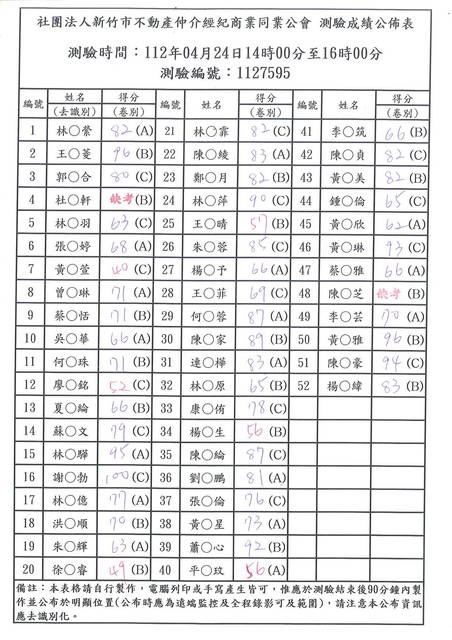 社團法人新竹市不動產仲介經紀商業同業公會 測驗成績公佈表
測驗時間：112年04月24日14時00分至16時00分
測驗編號：1127595
編號 姓名(去識別) 得分(卷別) 編號 姓名(去識別) 得分(卷別) 編號 姓名(去識別) 得分(卷別)
1 林〇縈 82 (A) 21 林〇霏 82 (C) 41 李〇筑 66 (B)
2 王〇菱 96 (B) 22 陳〇綾 83 (A) 42 陳〇貞 82 (C)
3 郭〇合 80 (C) 23 鄭〇月 82 (B) 43 黃〇美 82 (B)
4 杜〇軒 缺考 (B) 24 林〇萍 90 (C) 44 鍾〇倫 65 (C)
5 林〇羽 63 (C) 25 王〇晴 57 (B) 45 黃〇欣 62 (A)
6 張〇婷 68 (A) 26 朱〇蓉 85 (C) 46 黃〇琳 93 (C)
7 黃〇萱 40 (C) 27 楊〇予 66 (A) 47 蔡〇雅 66 (A)
8 曾〇琳 71 (A) 28 王〇菲 69 (C) 48 陳〇芝 缺考 (B)
9 蔡〇恬 71 (B) 29 何〇蓉 87 (A) 49 李〇芸 70 (A)
10 吳〇華 66 (A) 30 陳〇家 89 (B) 50 黃〇雅 96 (B)
11 何〇珠 71 (B) 31 連〇樺 83 (A) 51 陳〇豪 94 (C)
12 廖〇銘 52 (C) 32 林〇原 65 (B) 52 楊〇緯 83 (B)
13 夏〇綸 66 (B) 33 康〇侑 78 (C)
14 蘇〇文 79 (C) 34 楊〇生 56 (B)
15 林〇驊 95 (A) 35 陳〇綸 87 (C)
16 謝〇勃 100 (C) 36 劉〇鵬 81 (A)
17 林〇億 77 (A) 37 張〇倫 76 (C)
18 洪〇順 70 (B) 38 黃〇星 73 (A)
19 朱〇輝 63 (A) 39 蕭〇心 92 (B)
20 徐〇睿 49 (B) 40 平〇玟 56 (A)
備註：本表格請自行製作，電腦列印或手寫產生皆可，惟應於測驗結束後90分鐘內製
作並公布於明顯位置(公布時應為遠端監控及全程錄影可及範圍)，請注意本公布資訊
應去識別化。